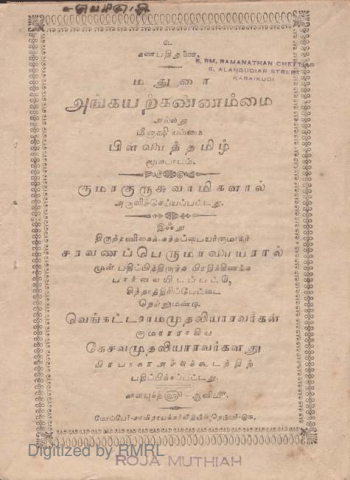 உ
கணபதிதுணை.
R. RM. RAMANATHAN CHETTIAR
ALANGUDIAR STREET
KARAIKUDI
மதுரை
அங்கயற்கண்ணம்மை
அல்லது
மீனாட்சியம்மை
பிள்ளைத்தமிழ்
மூலபாடம்.
குமரகுருசுவாமிகளால்
அருளிச்செய்யப்பட்டது.
இஃது
திருத்தணிகைக்
சரவணப்பெருமாளையரால்
முன் பதிப்பித்திருந்த பிரதிக்கிணங்க
பார்வையிடப்பட்டு,
சிந்தாத்திரிப்பேட்டை
வேங்கட்டராமமுதலியாரவர்கள்
குமாரராகிய
கேசவமுதலியாரவர்களது
பிரபாகரஅச்சுக்கூடத்திற்
பதிப்பிக்கப்பட்டது.
Digitized by RMRL
ROJA MUTHIAH